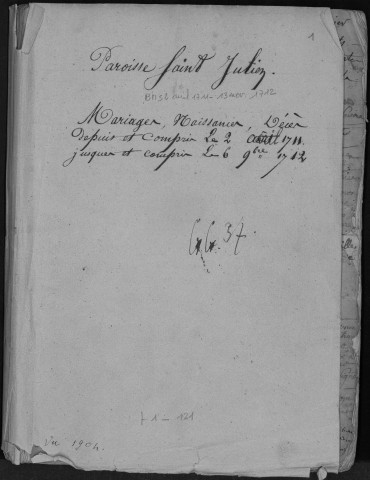 1
Paroisse Saint Julien.
BMS 2 avril 1711 - 1712
Mariages, Naissances, Décès
depuis et compris le 2 avril 1711.
jusques et compris le 6 9bre 1712
GG. 37.
1 - 121
Vu 1904.